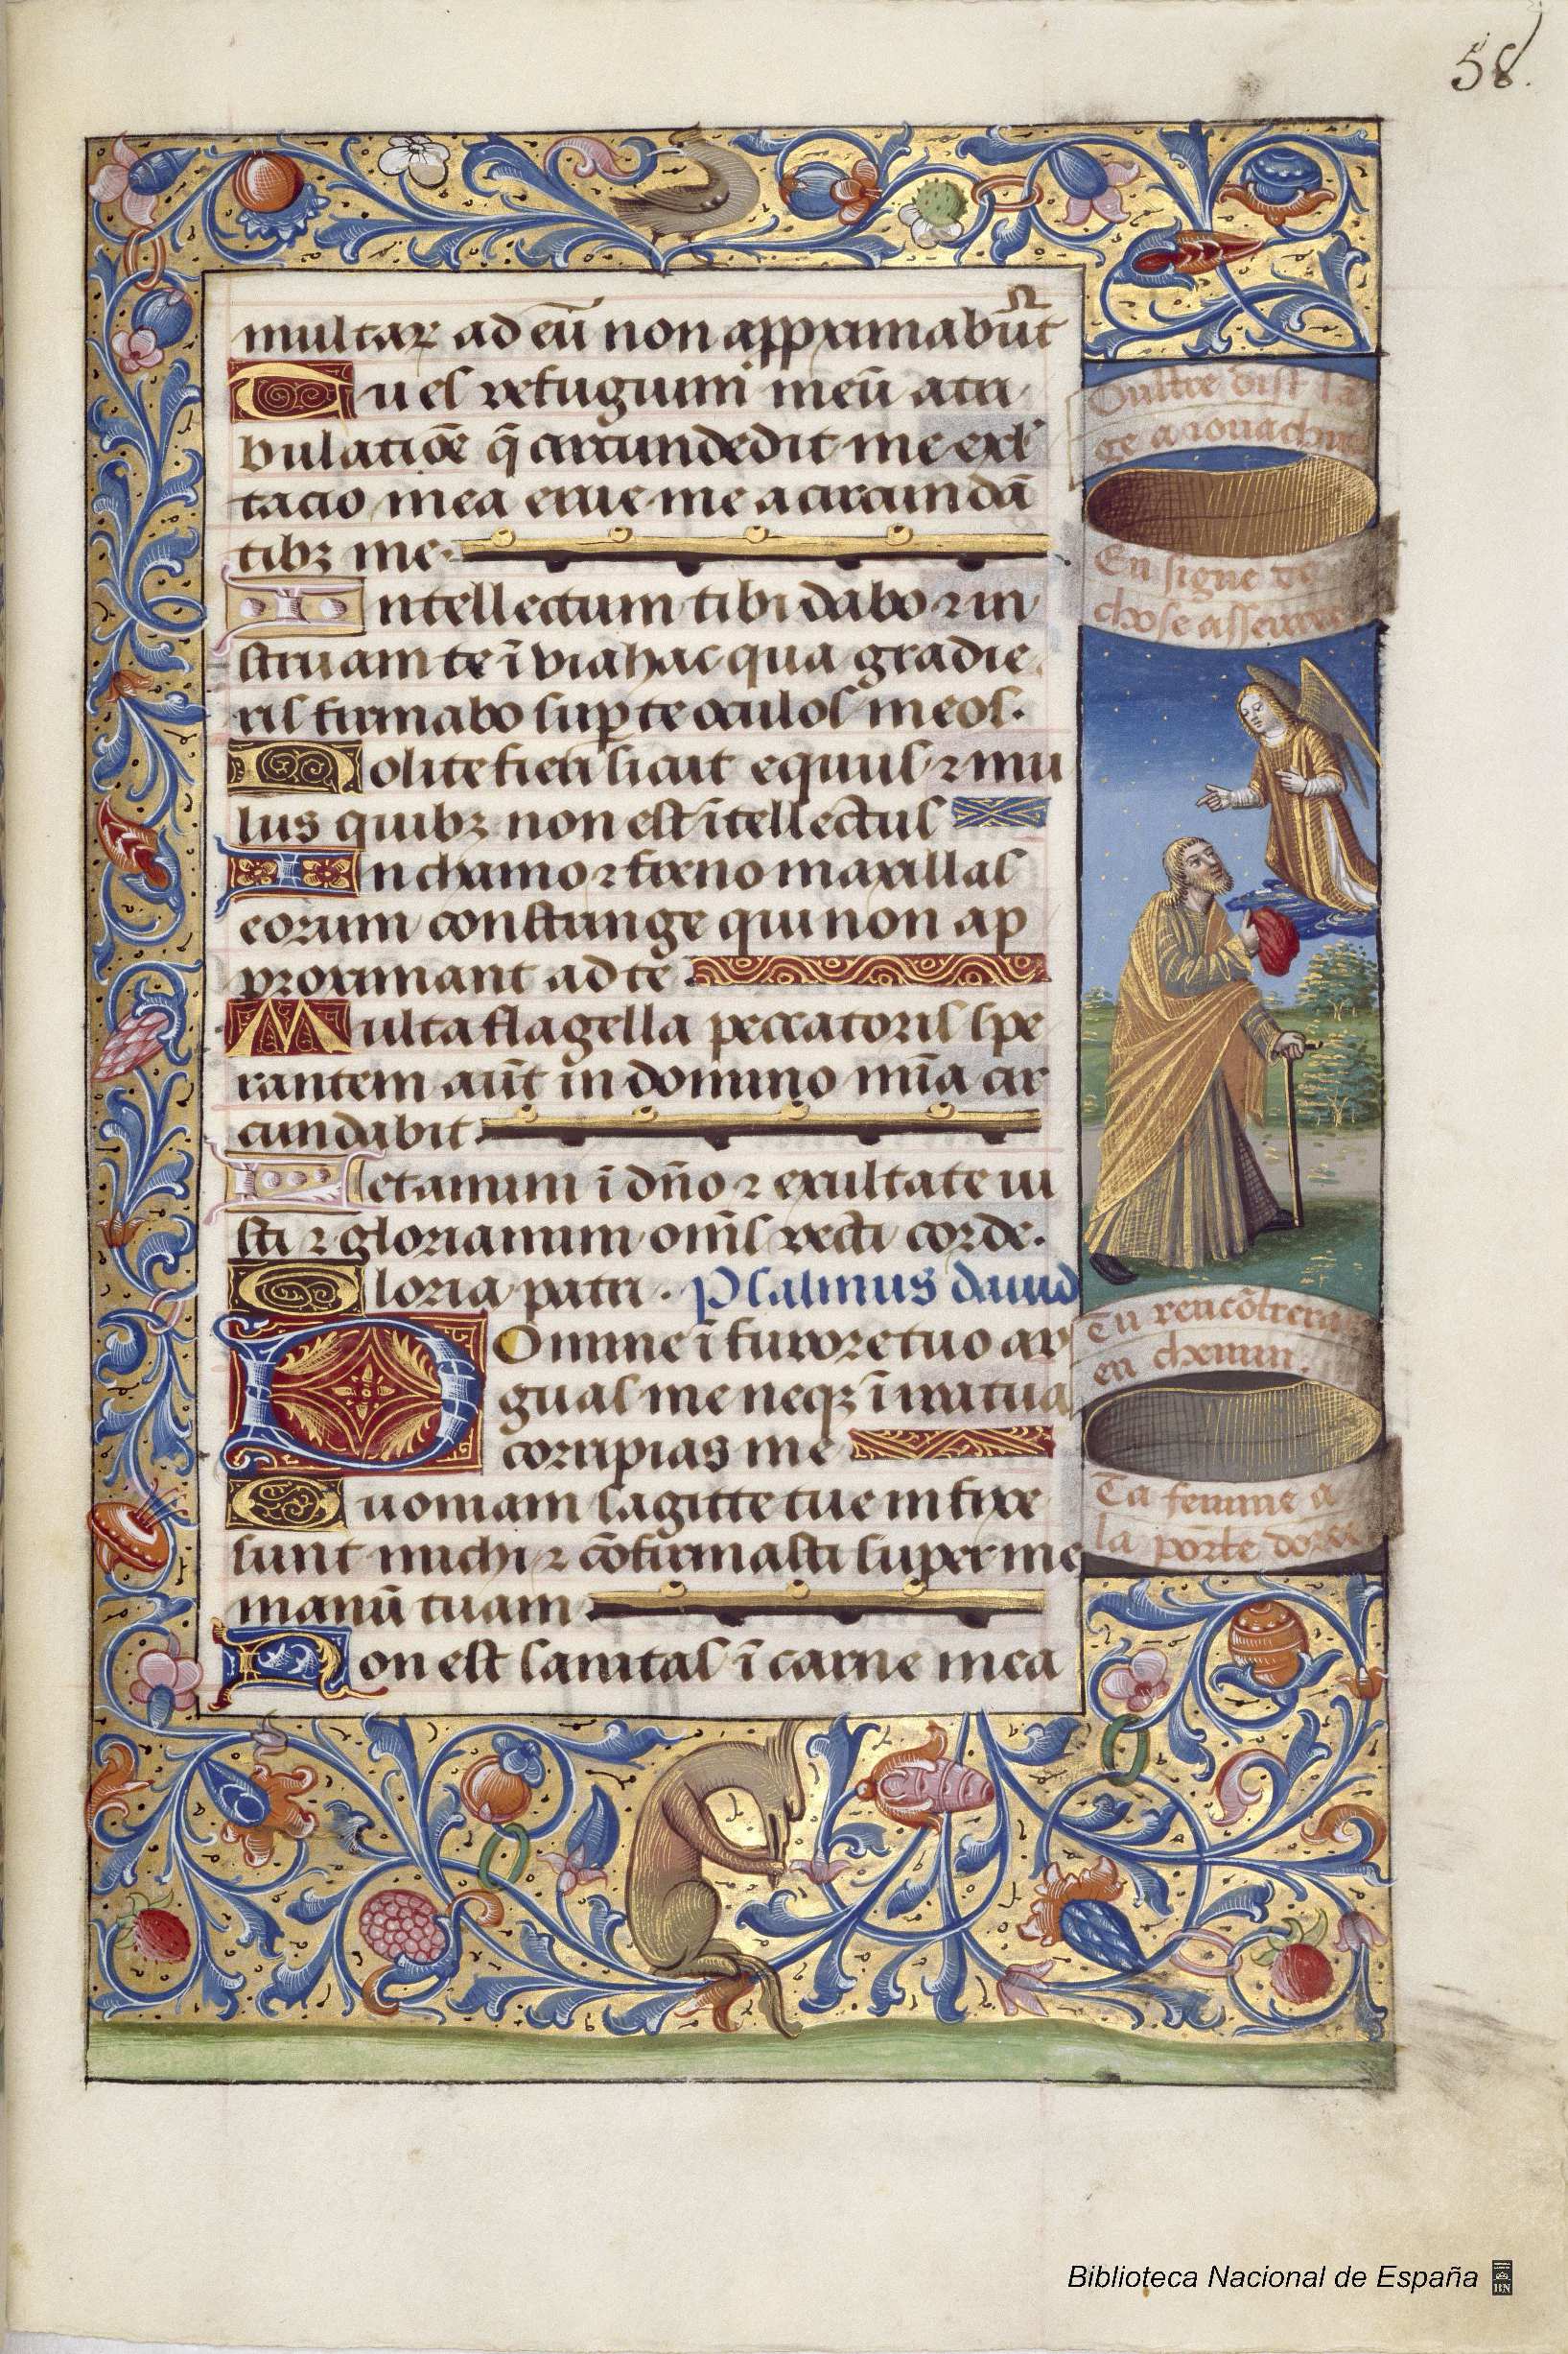 58.
multaꝝ ad eū non apprximabūt
Tu es refugium meū a tri
bulatiōe q̄ circundedit me exl
tacio mea erue me a circundā
tibꝫ me.
Intellectum tibi dabo ⁊ in
struam te ī via hac qua gradie
ris firmabo sup te oculos meos.
Nolite fieri sicut equus ⁊ mu
lus quibꝫ non est ītellectus
In chamo ⁊ freno maxillas
eorum constringe qui non ap
proximant ad te.
Multa flagella peccatoris spe
rantem aūt in domino mīa cir
cundabit.
Letamini ī dn̄o ⁊ exultate iu
sti ⁊ gloriamini om̄s recti corde.
Gloria patri. Psalmus dauid
Domine ī furore tuo ar
guas me neqꝫ ī ira tua
corripias me
Quoniam sagitte tue infixe
sunt michi ⁊ cōfirmasti super me
manū tuam.
Non est sanitas ī carne mea
Oultre dist la
ge a ionachin
En signe de
chose asseuree
Tu rencōtreras
en chemin.
Ta femme a
la porte doree
Biblioteca Nacional de España